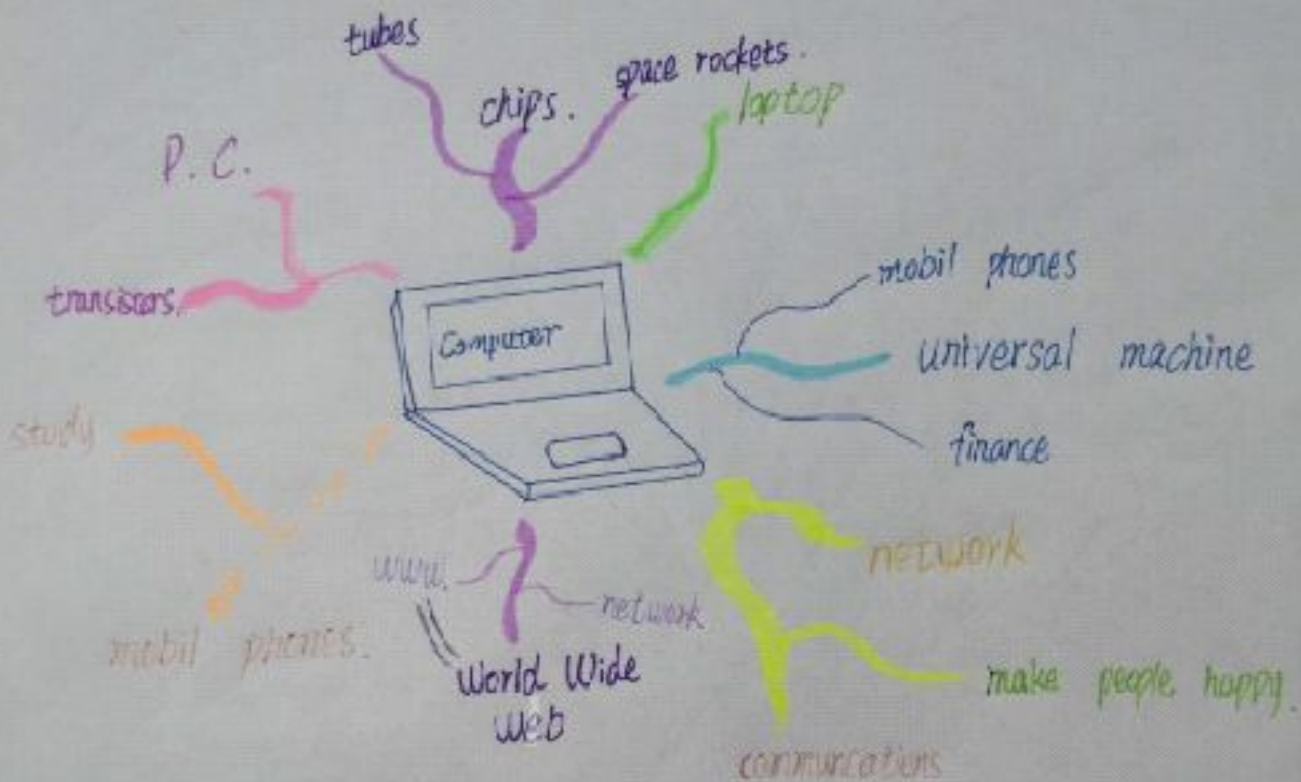 tubes
chips.
space rockets.
laptop
P. C.
transistors.
Computer
mobil phones
universal machine
finance
study
mobil phones.
www.
network
World Wide
Web
network
make people happy.
communcations